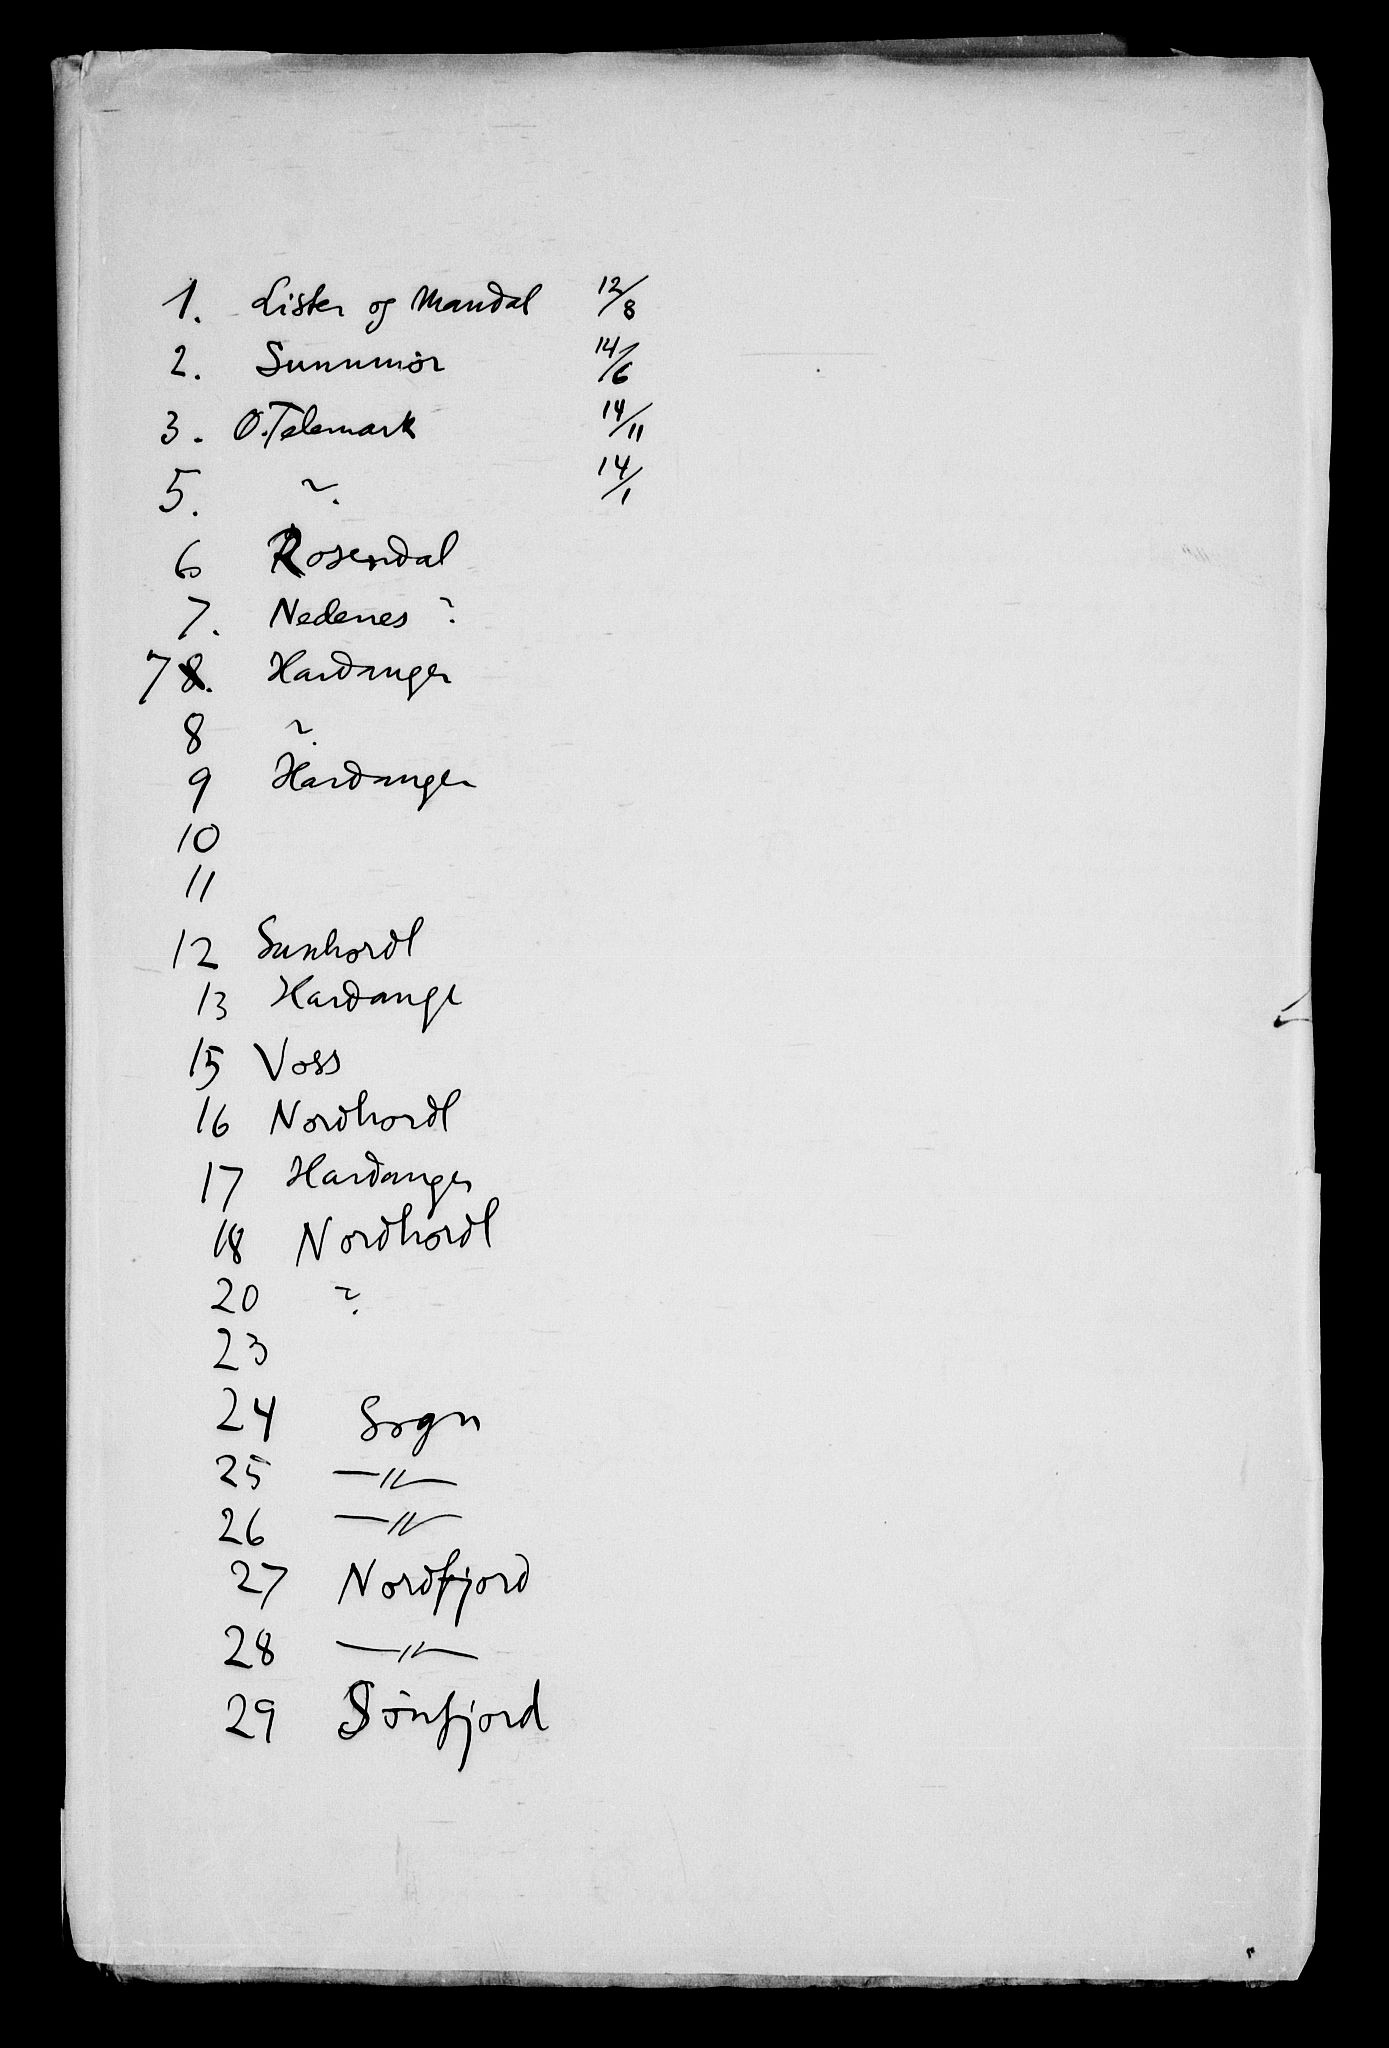 1. Lister og Mandal 12/8
2. Sunnmør 14/6
3. Ø. Telemark 14/11
5. ? 14/1
6 Rosendal
7. Nedenes ?
7 8. Hardanger
8 ?
9 Hardanger
10
11
12 Sunhordl
13 Hardange
15 Voss
16 Nordhordl
17 Hardanger
18 Nordhordl
20 ?
23
24 Sogn
25 —〃—
26 —〃—
27 Nordfjord
28 —〃—
29 Sönfjord